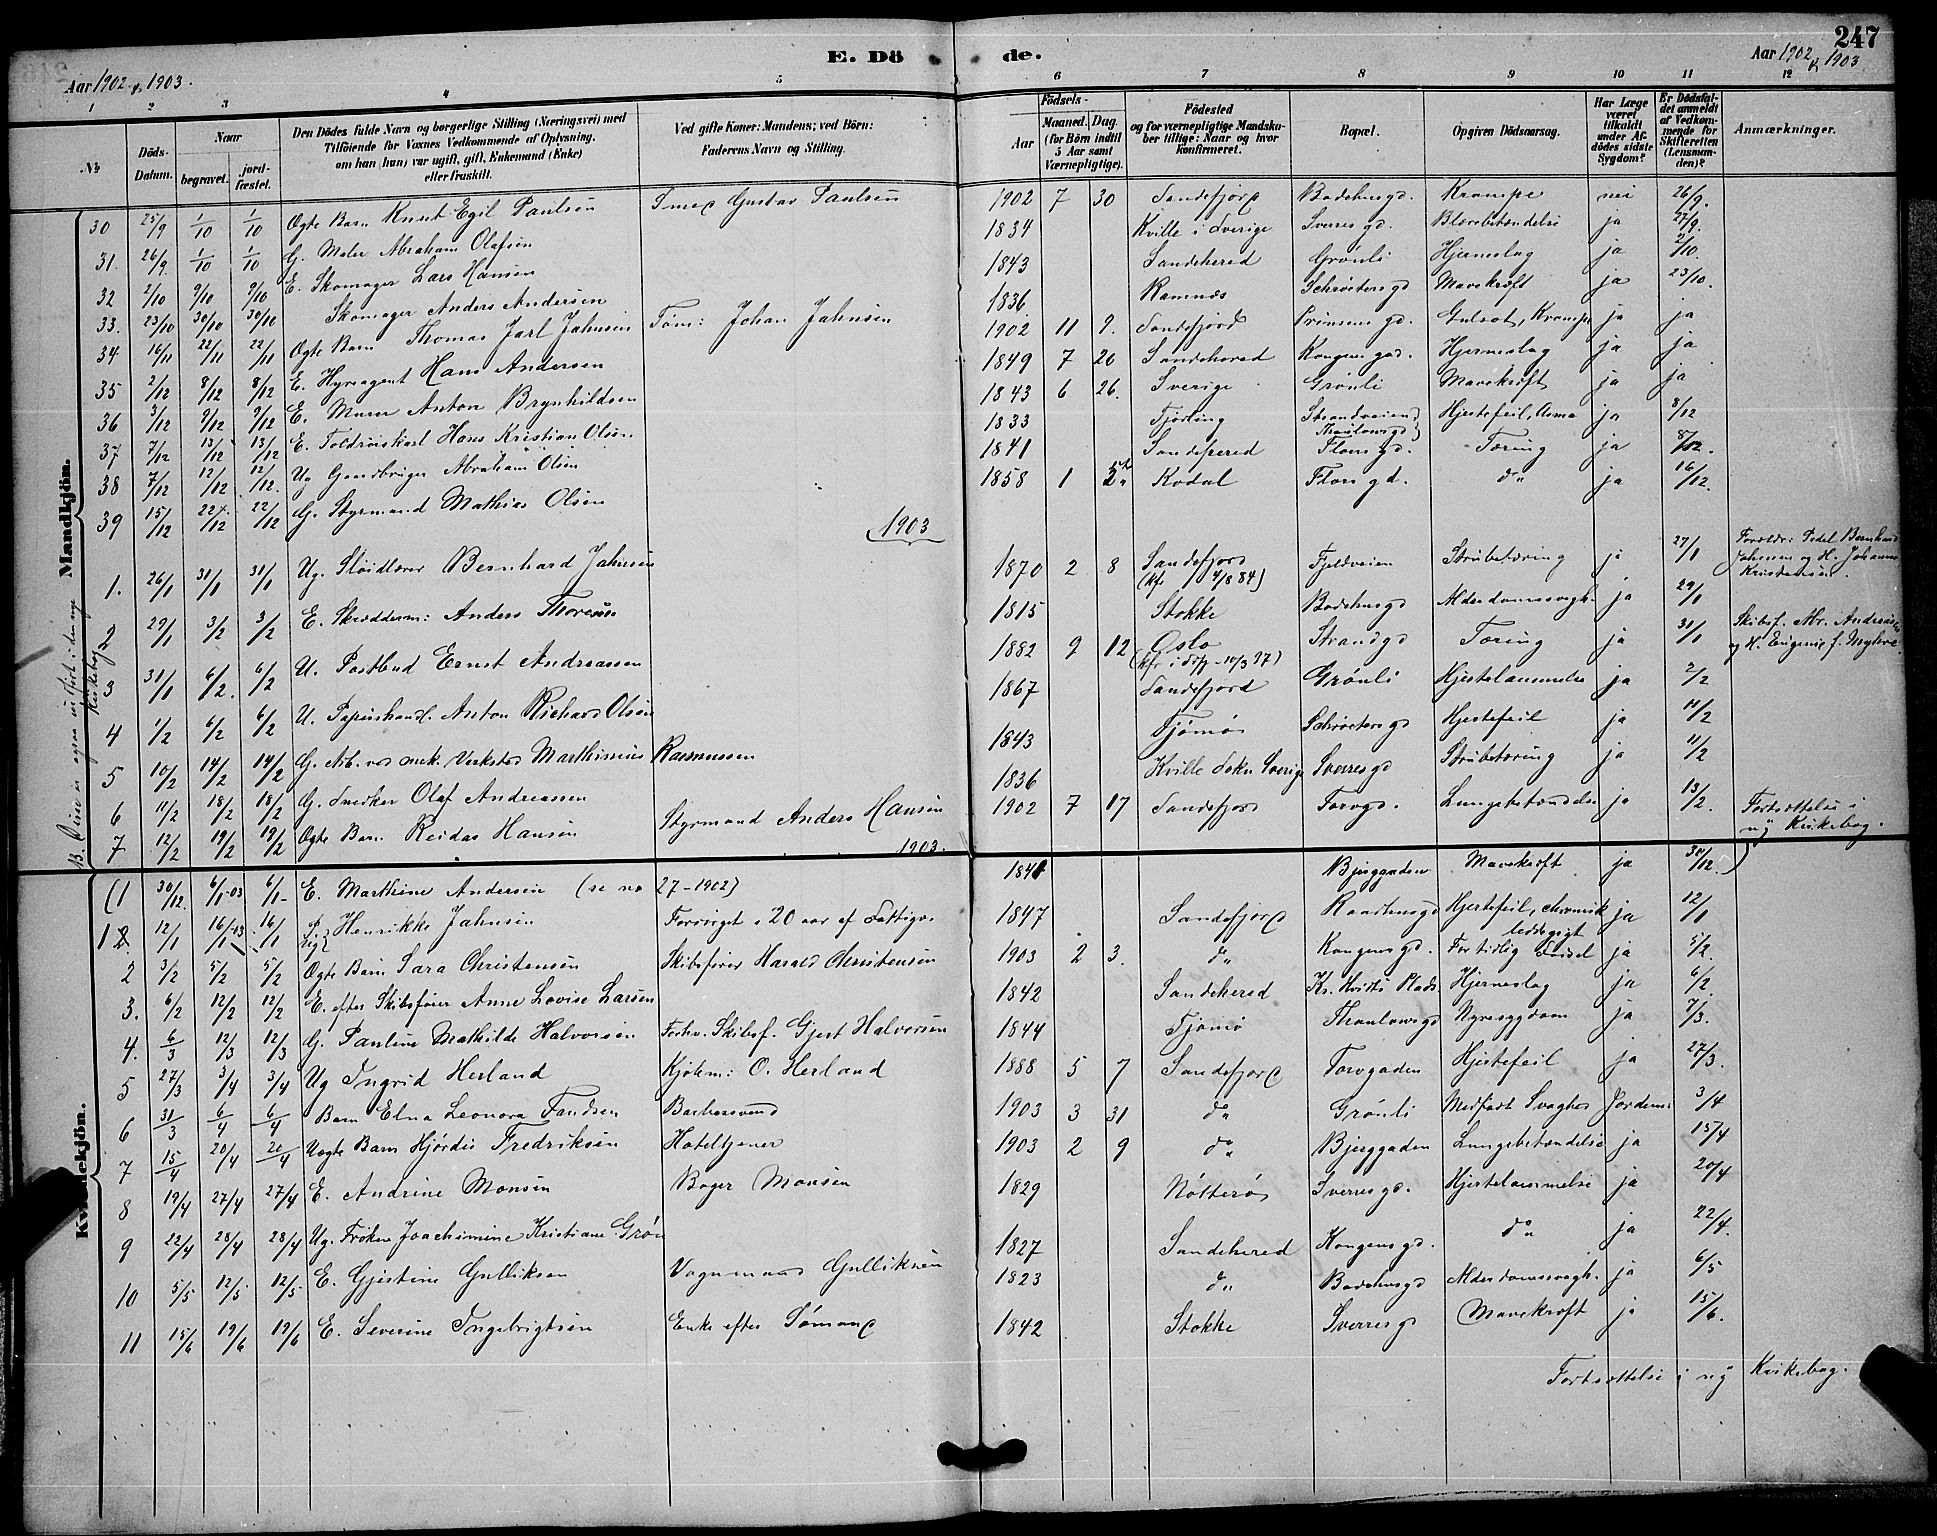 E. Döde.
247
Aar 1902 & 1903.
Aar 1902 & 1903
1 2 3 4 5 6 7 8 9 10 11 12
No.
Döds-Datum.
Naar
begravet.
jordfæstet.
Den Dödes fulde Navn og borgerlige Stilling (Næringsvei) med Tilföiende for Voxnes Vedkommende af Oplysning, om han (hun) var ugift, gift, Enkemand (Enke) eller fraskilt.
Ved gifte Koner: Mandens; ved Börn: Faderens Navn og Stilling.
Födsels-
Aar
Maaned. Dag.
(for Börn indtil 5 Aar samt Værnepligtige).
Födested og for værnepligtige Mandskaber tillige: Naar og hvor konfirmeret.
Bopæl.
Opgiven Dödsaarsag.
Har Læge været tilkaldt under Afdödes sidste Sygdom?
Er Dödsfaldet anmeldt af Vedkommende for Skifteretten (Lensmanden)?
Anmærkninger.
Mandkjön.
30 25/9 1/10 1/10 Ægte Barn Knut Egil Paulsen Smed Gustav Paulsen 1902 7 30 Sandefjord Badehusgd. Krampe nei 26/9.
31. 26/9 1/10 1/10 G. Maler Abraham Olafsen 1834 Kville i Sverige Sverres gd. Blærebetændelse ja 27/9.
32 2/10 9/10 9/10 E. Skomager Lars Hansen 1843 Sandeherred Grønli Hjerneslag ja 2/10.
33. 23/10 30/10 30/10 Skomager Anders Andersen 1836. Ramnes Schrøetersgd Mavekræft ja 23/10.
34 16/11 22/11 22/11 Ægte Barn Thomas Jarl Jahnsen Tøm: Johan Jahnsen 1902 11 9. Sandefjord Prinsens gd. Gulsot, Krampe ja ja
35 2/12 8/12 8/12 E. Hyreagent Hans Andersen 1849 7 20 Sandeherred Kongens gad. Hjerneslag ja ja
36 3/12 9/12 9/12 E. Murer Anton Brynhildsen 1843 6 26. Sverige Grønli Mavekræft ja ja
37 7/12 13/12 13/12 E. Toldroiskarl Hans Kristian Olsen 1833 Tjølling Strandveien Thaulowsgd Hjertefeil, Asma ja 8/12
38 7/12 12/12 12/12. Ug Gaardbruger Abraham Olsen 1841 Sandeherred Floors gd. Tæring ja 8/12.
39 15/12 22/12 22/12 G. Styrmand Mathias Olsen 1858 1 Kodal Flors gd. do ja 16/12.
1903
1. 26/1 31/1 31/1 Ug. Sløidlærer Bernhard Jahnsen 1870 2 8 Sandefjord (kfr 4/8 84) Fjeldveien Strubetæring ja 27/1 Forældr: Pedel Bernhard Jahnsen og H. Johanne Kristensen.
2 29/1 3/2 3/2 E. Skrædderm: Anders Thoresen 1815 Stokke Badehusgd Alderdomssvagh. ja 29/1
3 31/1 6/2. 6/2 U. Postbud Ernst Andreassen 1882 9 12 Oslo Strandgd Tæring ja 31/1 Skibsf. Abr. Andreassen og H. Eugenie f. Myhre
4 1/2 6/2 6/2 U. Papirshandl. Anton Richard Olsen 1867 Sandefjord Grønli Hjertelammelse ja 2/2
5 10/2 14/2 14/2 G. Arb. ved mek. Verksted Marthinius Rasmussen 1843 Tjømø Schrøetersgd Hjertefeil ja 11/2
6 11/2 18/2 18/2 G. Snedker Olaf Andreassen 1836 Kville Sokn Sverige Sverresgd Strubetæring ja 11/2
7 12/2 19/2 19/2 Ægte Barn Reidar Hansen Styrmand Anders Hansen 1902 7 17 Sandefjord Torvgd. Lungebetændelse ja 13/2. Fortsættelse i ny Kirkebog.
Kvindekjön.
1903.
(1 30/12. 6/1-03 6/1- E. Marthine Andersen (se no 27-1902) 1841 Bjerggaden Mavekræft ja 30/12.)
1 12/1 16/1-03 16/1 Henrikke Jahnsen Forsørget i 20 aar af Fattigv. 1847 Sandefjord Raastensgd Hjertefeil, chronisk leddegigt ja 12/1
2 3/2 5/2 5/2 Ægte Barn Sara Christensen Skibsfører Harald Christensen 1903 2 3. do Kongensgd. For tidlig Fødsel ja 5/2.
3. 6/2 12/2 12/2 E. efter Skibsfører Anne Lovise Larsen 1842 Sandeherred Kr. Hvitts Plads. Hjerneslag ja 6/2.
4. 6/3 12/3 12/3 G. Pauline Mathilde Halvorsen Forhv. Skibsf. Gjert Halvorsen 1844 Tjømø Thaulowsgd Nyresygdom ja 7/3.
5 27/3 3/4 3/4 Ug Ingrid Herland Kjøbm: O. Herland 1888 5 7 Sandefjord Torvgaden Hjertefeil ja 27/3.
6 31/3 6/4 6/4 Barn Elna Leonora Tandsen Barbersvend 1903 3 31 do Grønli Medfødt Svaghed Jordem: 3/4
7 15/4 20/4 20/4 Uægte Barn Hjørdis Fredriksen Hoteltjener 1903 2 9 do Bjerggaden Lungebetændelse ja 15/4
8 19/4 27/4 27/4 E. Andrine Monsen Bager Monsen 1829 Nøtterø Sverres gd. Hjertelammelse ja 20/4
9 22/4 28/4 28/4 Ug. Frøken Joachimine Kristiane Grøn 1827 Sandeherred Kongensgd. do ja 22/4.
10 5/5 12/5 12/5 E. Gjertine Gulliksen Vognmand Gulliksen 1823 do Badehusgd Alderdomssvagh. ja 6/5
11 15/6 19/6 19/6 E. Severine Ingebrigtsen Enke efter Sømand 1842 Stokke Sverresgd Mavekræft ja 15/6.
Fortsættelse i ny Kirkebog.